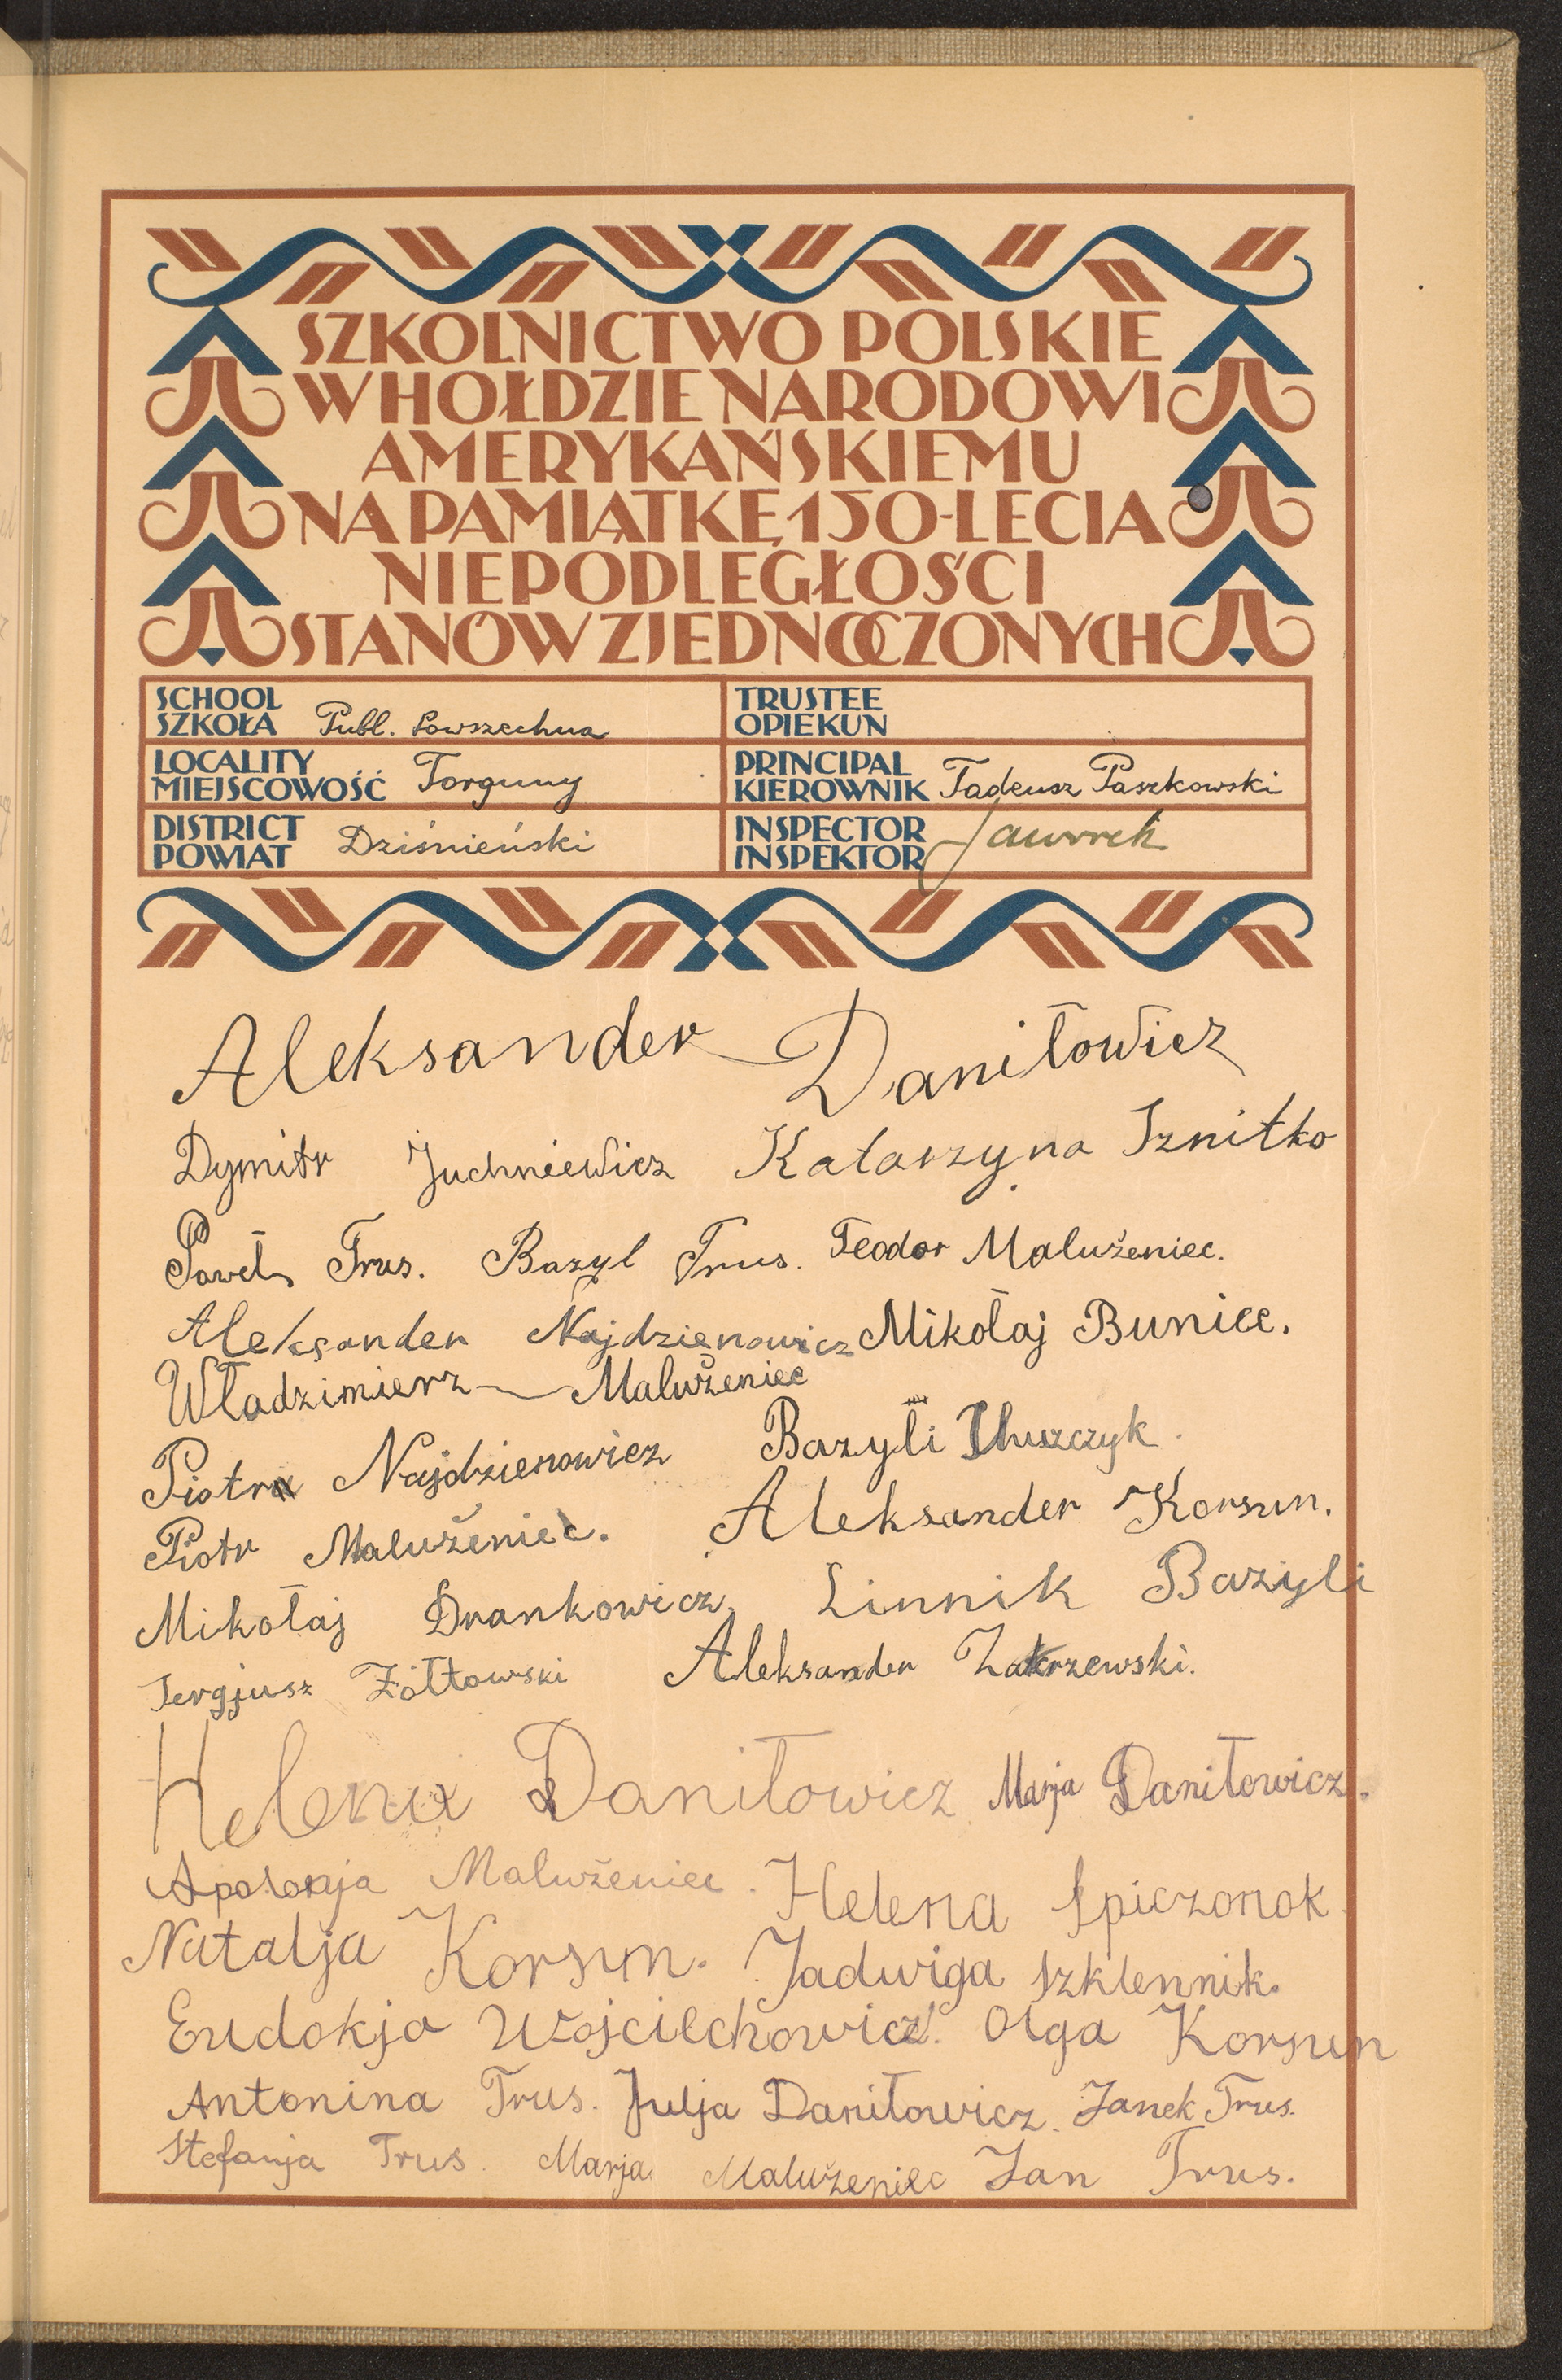 SZKOLNICTWO POLSKIE
W HOŁDZIE NARODOWI
AMERYKAŃSKIEMU
NA PAMIĄTKĘ 150-LECIA
NIEPODLEGŁOŚCI
STANÓW ZJEDNOCZONYCH
SCHOOL
SZKOŁA Publ. Powszechna
TRUSTEE
OPIEKUN
LOCALITY
MIEJSCOWOŚĆ Torguny
PRINCIPAL
KIEROWNIK Tadeusz Paszkowski
DISTRICT
POWIAT Dziśnieński
INSPECTOR
INSPEKTOR
Aleksander Daniłowicz
Dymitr Juchniewicz Katarzyna Sznitko
Paweł Trus. Bazyl Trus. Teodor Malużeniec.
Aleksander Najdzienowicz Mikołaj Buniec.
Władzimierz Malużeniec
Piotr Najdzienowicz Bazyli
Piotr Malużeniec. Aleksander Korsun.
Mikołaj Drankowicz. Linnik Bazyli
Sergjusz Żółtowski Aleksander Zakrzewski.
Helena Daniłowicz Marja Daniłowicz.
Apolonja Malużeniec. Helena Spiczonok.
Natalja Korsun. Jadwiga Szklennik.
Eudokja Wojciechowicz. Olga Korsun
Antonina Trus. Julja Daniłowicz. Janek Trus.
Stefanja Trus. Marja Malużeniec Jan Trus.